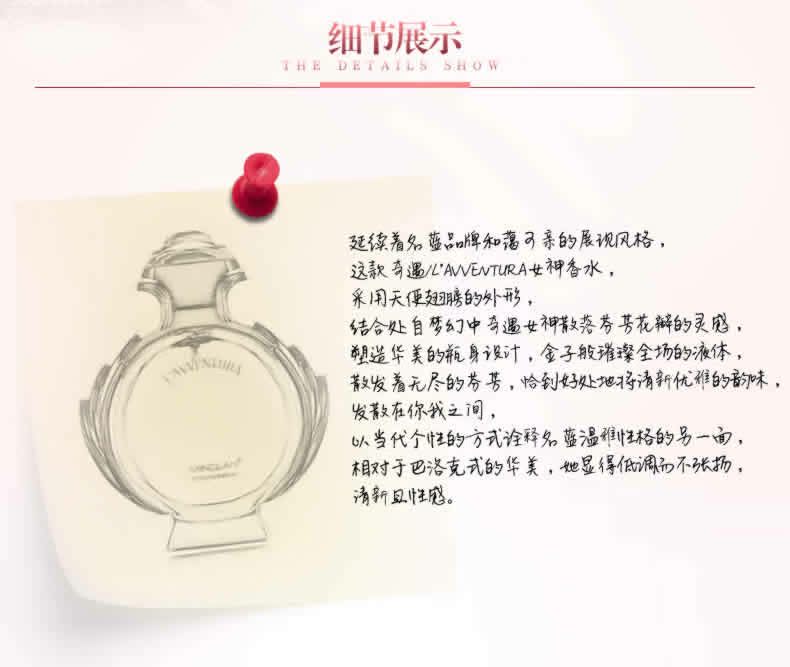 细节展示
THE DETAILS SHOW
L'AVVENTURA
MINGLAN
延续着名蓝品牌和蔼可亲的展现风格，
这款奇遇/L'AVVENTURA女神香水，
采用天使翅膀的外形，
结合处自梦幻中奇遇女神散落芬芳花瓣的灵感，
塑造华美的瓶身设计，金子般璀璨全场的液体，
散发着无尽的芬芳，恰到好处地将清新优雅的韵味，
发散在你我之间，
以当代个性的方式诠释名蓝温雅性格的另一面，
相对于巴洛克式的华美，她显得低调而不张扬，
清新且性感。